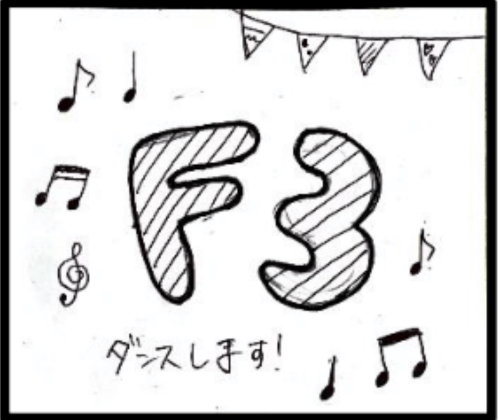 F3
ダンスします!